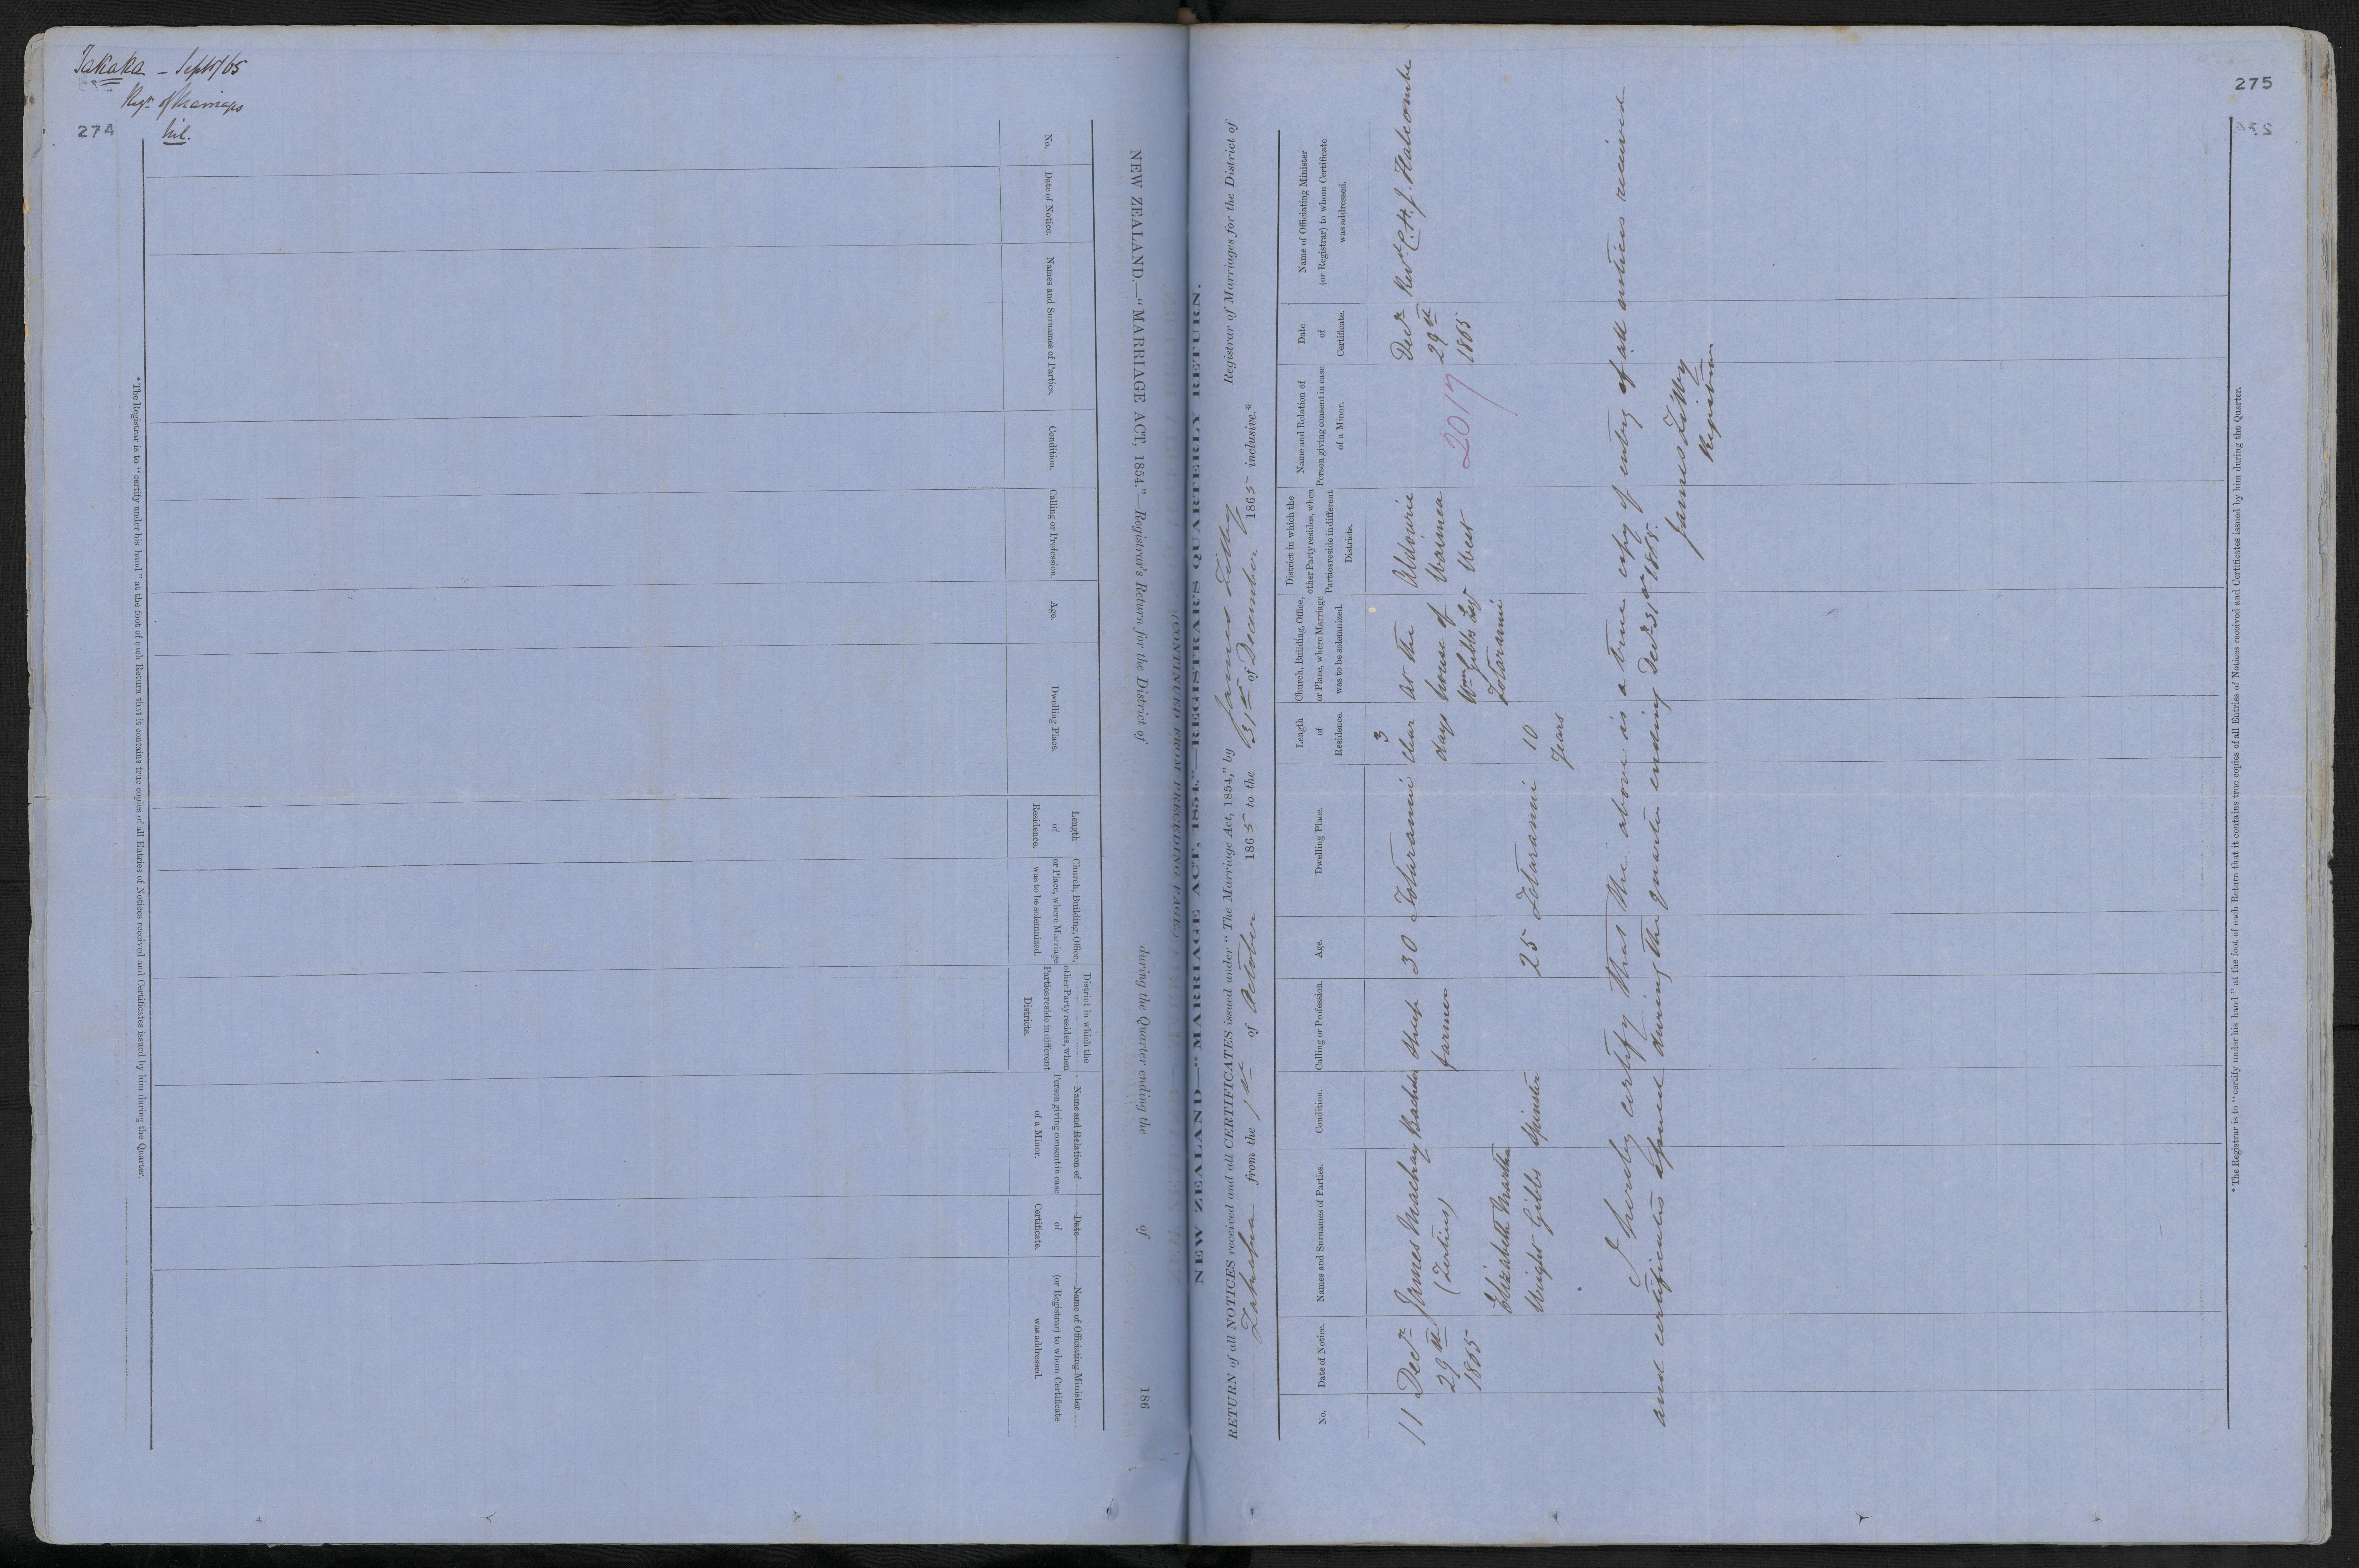 Takaka — Sept/65
Regr of Marriages
274
Nil.
NEW ZEALAND.—"MARRIAGE ACT, 1854."—Registrar's Return for the District of during the Quarter ending the of 186
No.
Date of Notice.
Names and Surnames of Parties.
Condition.
Calling or Profession.
Age.
Dwelling Place.
Length
of
Residence.
Church, Building, Office,
or Place, where Marriage
was to be solemnized.
District in which the
other Party resides, when
Parties reside in different
Districts.
Name and Relation of
Person giving consent in case
of a Minor.
Date
of
Certificate.
Name of Officiating Minister
(or Registrar) to whom Certificate
was addressed.
* The Registrar is to "certify under his hand" at the foot of each Return that it contains true copies of all Entries of Notices received and Certificates issued by him during the Quarter.
275
NEW ZEALAND—"MARRIAGE ACT, 1854."—REGISTRAR'S QUARTERLY RETURN.
RETURN of all NOTICES received and all CERTIFICATES issued under "The Marriage Act, 1854," by James Lilly Registrar of Marriages for the District of
Takaka from the 1st of October 1865 to the 31st of December 1865 inclusive.*
No.
Date of Notice.
Names and Surnames of Parties.
Condition.
Calling or Profession.
Age.
Dwelling Place.
Length
of
Residence.
Church, Building, Office,
or Place, where Marriage
was to be solemnized.
District in which the
other Party resides, when
Parties reside in different
Districts.
Name and Relation of
Person giving consent in case
of a Minor.
Date
of
Certificate.
Name of Officiating Minister
(or Registrar) to whom Certificate
was addressed.
11
Decr
29th
1865
James Mackay
(Tertius)
Elizabeth Martha
Wright Gibbs
Bachelor
Spinster
Sheep
farmer
30
25
Totaranui
Totaranui
3
clear
days
10
years
At the
house of
Wm Gibbs Esq
Totaranui
Waimea
West
2017
Decr
29th
1865
Revd C. H. J. Halcombe
I hereby certify that the above is a true copy of entry of all notices received
and certificates issued during the quarter ending Decr 31st 1865.
Registrar
* The Registrar is to "certify under his hand" at the foot of each Return that it contains true copies of all Entries of Notices received and Certificates issued by him during the Quarter.